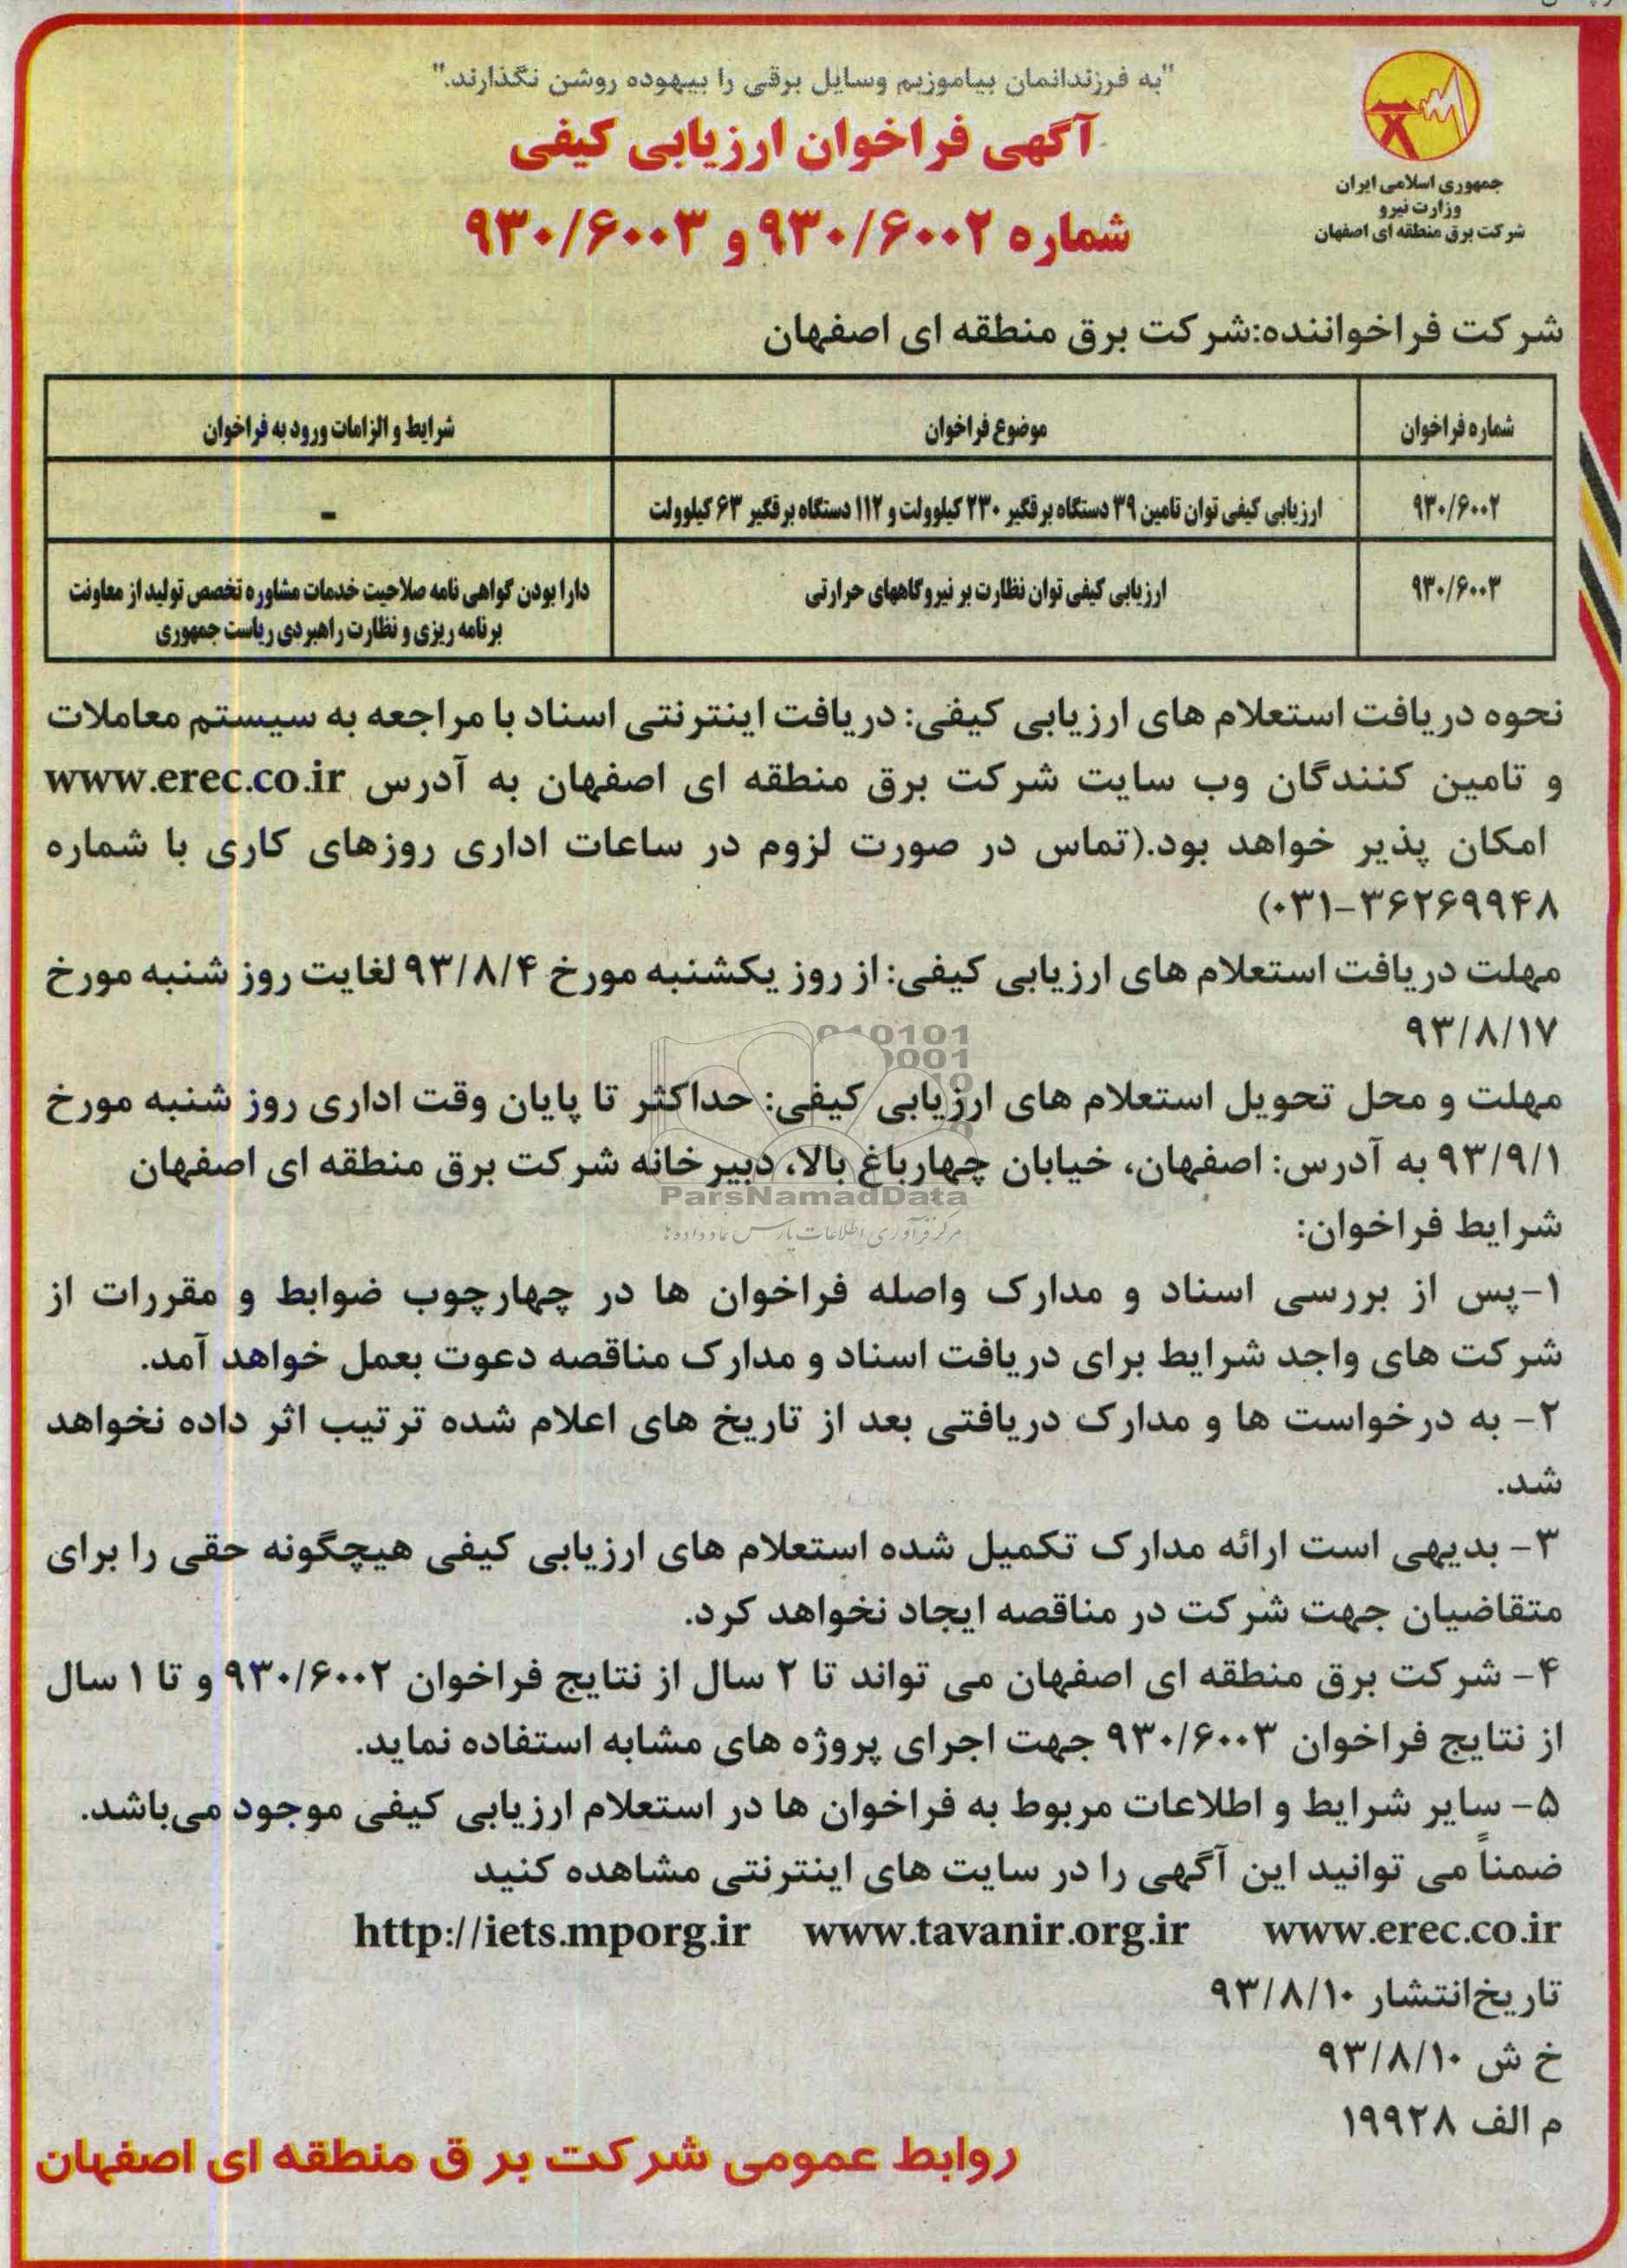 "به فرزندانمان بیاموزیم وسایل برقی را بیهوده روشن نگذارند."
آگهی فراخوان ارزیابی کیفی
شماره ۹۳۰/۶۰۰۲ و ۹۳۰/۶۰۰۳
جمهوری اسلامی ایران
وزارت نیرو
شرکت برق منطقه ای اصفهان
شرکت فراخواننده:شرکت برق منطقه ای اصفهان
شماره فراخوان
موضوع فراخوان
شرایط و الزامات ورود به فراخوان
۹۳۰/۶۰۰۲
ارزیابی کیفی توان تامین ۳۹ دستگاه برقگیر ۲۳۰ کیلوولت و ۱۱۲ دستگاه برقگیر ۶۳ کیلوولت
-
۹۳۰/۶۰۰۳
ارزیابی کیفی توان نظارت بر نیروگاههای حرارتی
دارا بودن گواهی نامه صلاحیت خدمات مشاوره تخصص تولید از معاونت
برنامه ریزی و نظارت راهبردی ریاست جمهوری
نحوه دریافت استعلام های ارزیابی کیفی: دریافت اینترنتی اسناد با مراجعه به سیستم معاملات
و تامین کنندگان وب سایت شرکت برق منطقه ای اصفهان به آدرس www.erec.co.ir
امکان پذیر خواهد بود.(تماس در صورت لزوم در ساعات اداری روزهای کاری با شماره
۰۳۱-۳۶۲۶۹۹۴۸)
مهلت دریافت استعلام های ارزیابی کیفی: از روز یکشنبه مورخ ۹۳/۸/۴ لغایت روز شنبه مورخ
۹۳/۸/۱۷
مهلت و محل تحویل استعلام های ارزیابی کیفی: حداکثر تا پایان وقت اداری روز شنبه مورخ
۹۳/۹/۱ به آدرس: اصفهان، خیابان چهارباغ بالا، دبیرخانه شرکت برق منطقه ای اصفهان
ParsNamadData
مرکز فرآوری اطلاعات پارس نماد داده ها
شرایط فراخوان:
۱-پس از بررسی اسناد و مدارک واصله فراخوان ها در چهارچوب ضوابط و مقررات از
شرکت های واجد شرایط برای دریافت اسناد و مدارک مناقصه دعوت بعمل خواهد آمد.
۲- به درخواست ها و مدارک دریافتی بعد از تاریخ های اعلام شده ترتیب اثر داده نخواهد
شد.
۳- بدیهی است ارائه مدارک تکمیل شده استعلام های ارزیابی کیفی هیچگونه حقی را برای
متقاضیان جهت شرکت در مناقصه ایجاد نخواهد کرد.
۴- شرکت برق منطقه ای اصفهان می تواند تا ۲ سال از نتایج فراخوان ۹۳۰/۶۰۰۲ و تا ۱ سال
از نتایج فراخوان ۹۳۰/۶۰۰۳ جهت اجرای پروژه های مشابه استفاده نماید.
۵- سایر شرایط و اطلاعات مربوط به فراخوان ها در استعلام ارزیابی کیفی موجود می‌باشد.
ضمناً می توانید این آگهی را در سایت های اینترنتی مشاهده کنید
http://iets.mporg.ir www.tavanir.org.ir www.erec.co.ir
تاریخ‌انتشار ۹۳/۸/۱۰
خ ش ۹۳/۸/۱۰
م الف ۱۹۹۲۸
روابط عمومی شرکت برق منطقه ای اصفهان